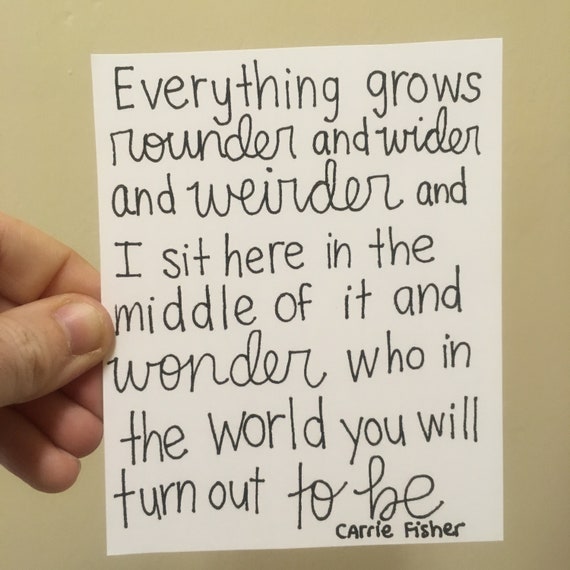 Everything grows
rounder and wider
and weirder and
I sit here in the
middle of it and
wonder who in
the world you will
turn out to be
CARRie FisheR